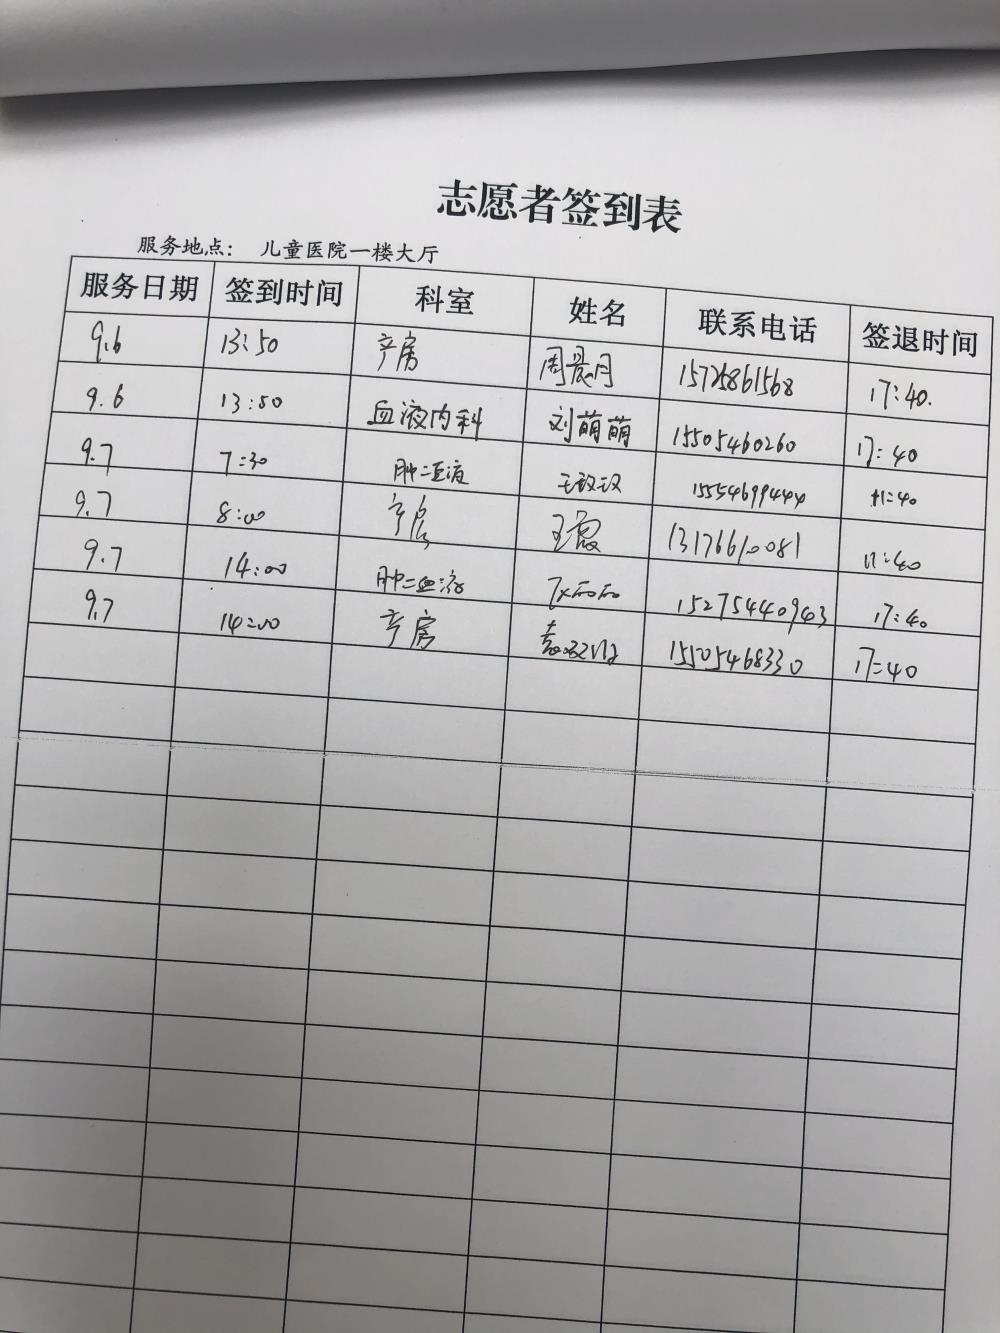 志愿者签到表
服务地点： 儿童医院一楼大厅
服务日期 签到时间 科室 姓名 联系电话 签退时间
9.6 13:50 产房 周晨月 15725861568 17:40.
9.6 13:50 血液内科 刘萌萌 15505460260 17:40
9.7 7:30 肿二血液 15554699444 11:40
9.7 8:00 产房 王霞 13176610081 11:40
9.7 14:00 肿二血液 15275440943 17:40
9.7 14:00 产房 15505468330 17:40